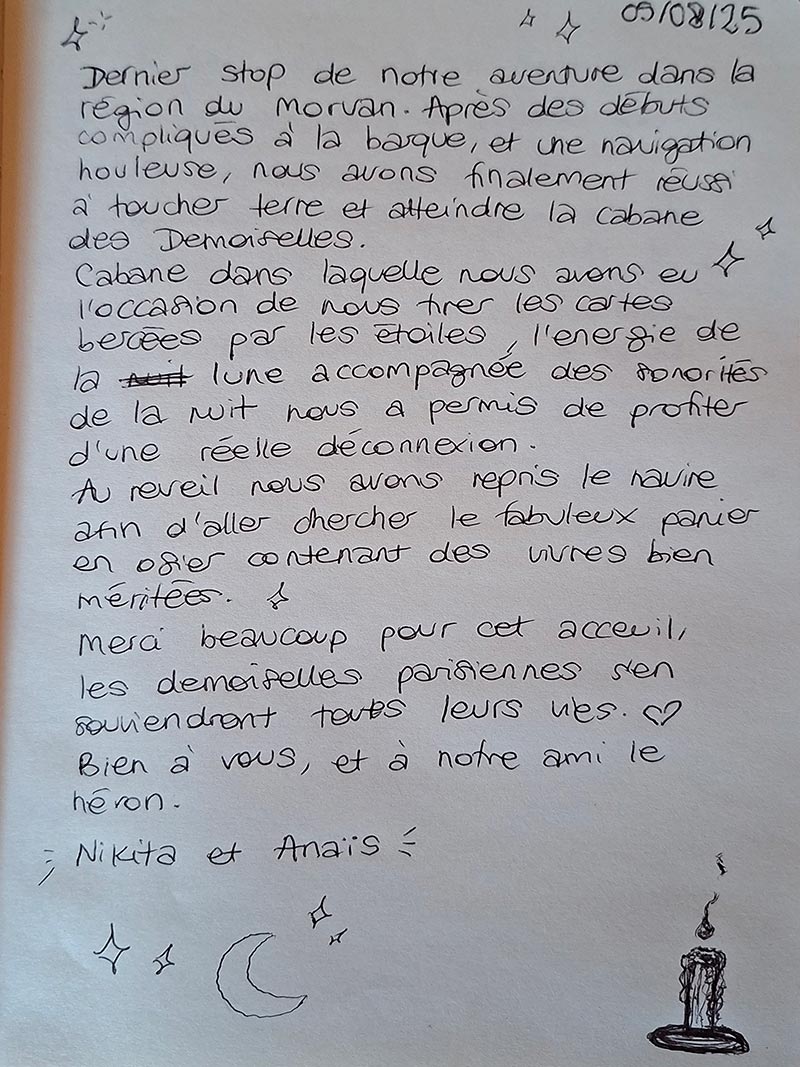 09/08/25
Dernier stop de notre aventure dans la
région du Morvan. Après des débuts
compliqués à la barque, et une navigation
houleuse, nous avons finalement réussi
à toucher terre et atteindre la cabane
des Demoiselles.
Cabane dans laquelle nous avons eu
l'occasion de nous tirer les cartes
bercées par les étoiles, l'energie de
la nuit lune accompagnée des sonorités
de la nuit nous a permis de profiter
d'une réelle déconnexion.
Au reveil nous avons repris le navire
afin d'aller chercher le fabuleux panier
en osier contenant des vivres bien
méritées.
Merci beaucoup pour cet acceuil,
les demoiselles parisiennes s'en
souviendront toutes leurs vies. ♡
Bien à vous, et à notre ami le
héron.
Nikita et Anaïs